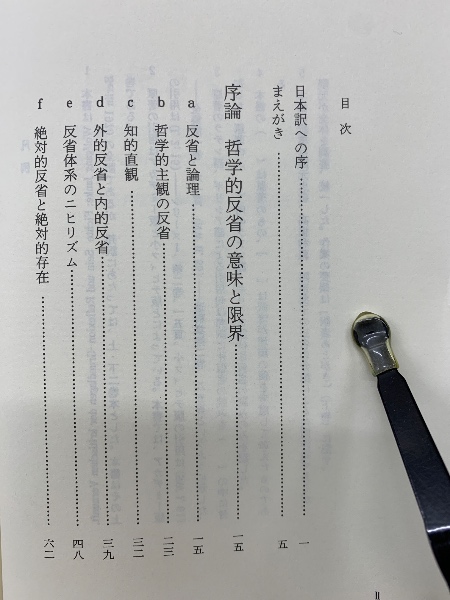 目次
日本訳への序……一
まえがき……五
序論 哲学的反省の意味と限界……一五
a 反省と論理……一五
b 哲学的主観の反省……二三
c 知的直観……三二
d 外的反省と内的反省……三九
e 反省体系のニヒリズム……四八
f 絶対的反省と絶対的存在……六二